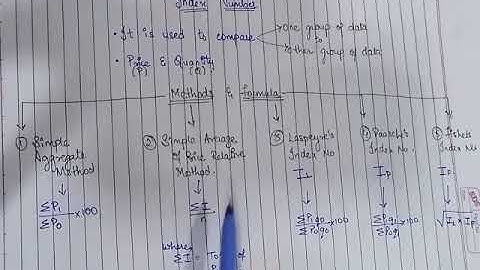 Index Number
• It is used to compare
One group of data
to
other group of data
• Price & Quantity
(P) (Q)
Methods & formula
① Simple
Aggregate
Method
ΣP₁
ΣP₀ ×100
② Simple Average
of Price Relative
Method.
ΣI
n
where
ΣI = of
③ Laspeyre's
Index No.
I_L
ΣP₁q₀
ΣP₀q₀ ×100
④ Paasche's
Index No.
I_P
ΣP₁q₁
ΣP₀q₁ ×100
⑤ Fisher's
Index No
I_F
√I_L × I_P